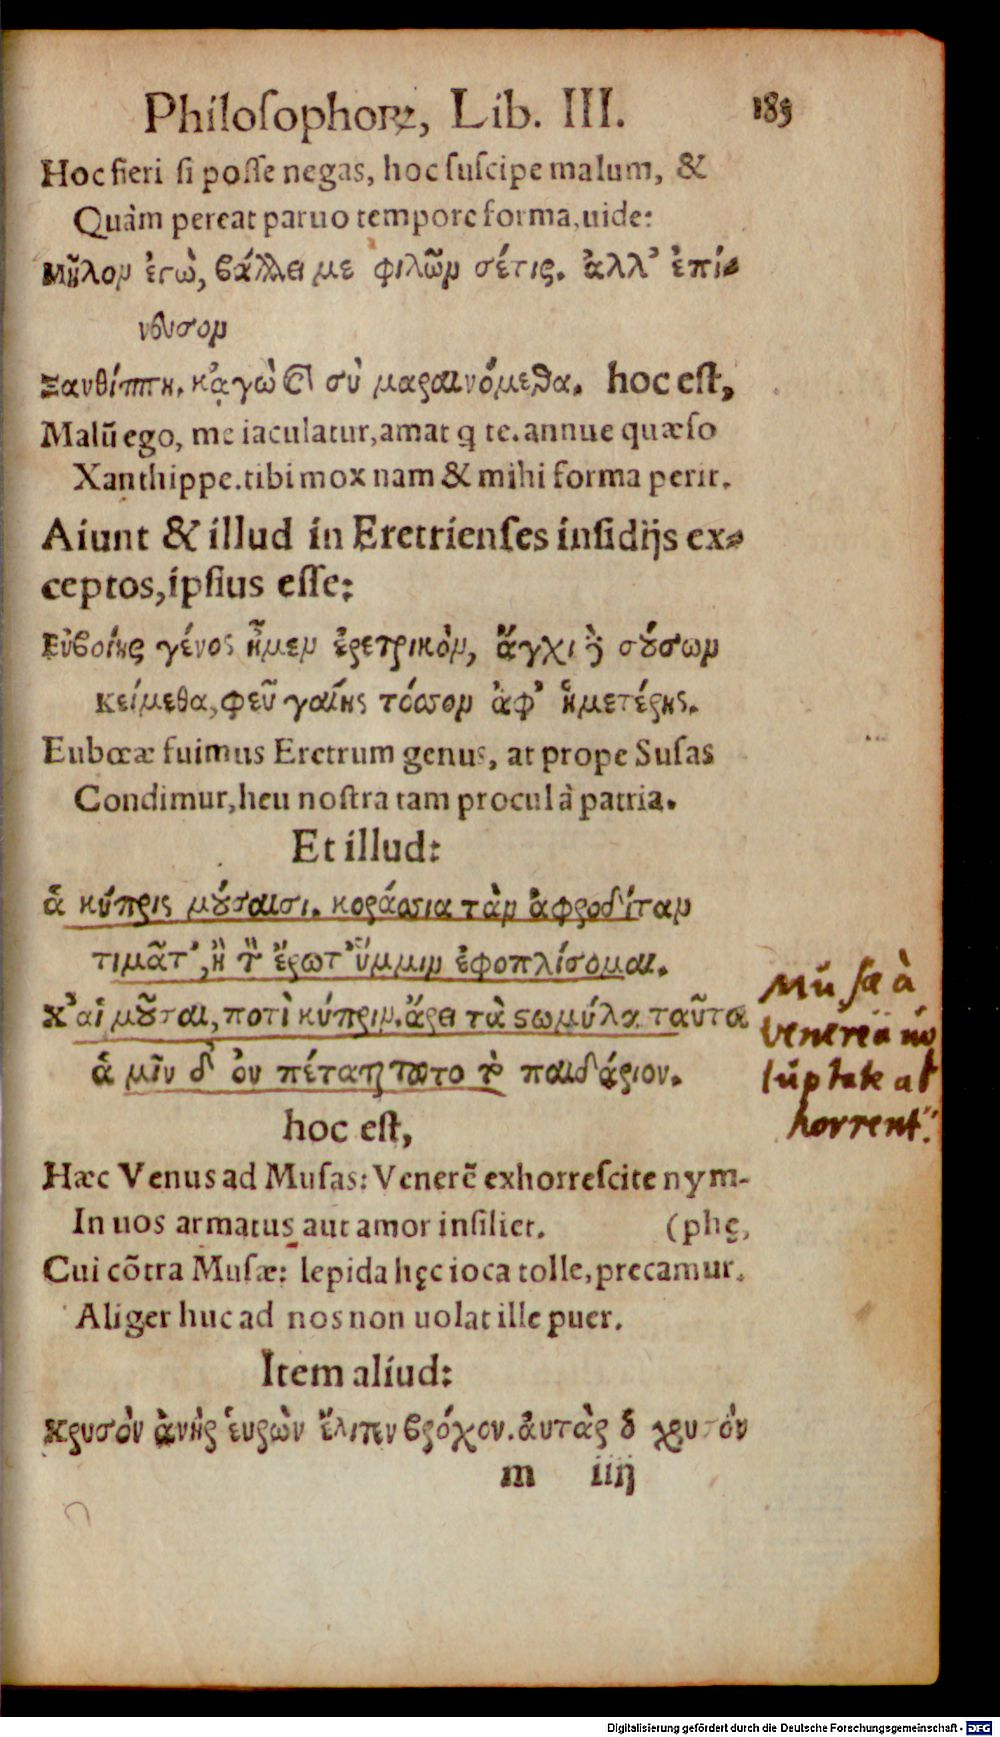 Philosophorꝝ, Lib. III. 185
Hoc fieri si posse negas, hoc suscipe malum, &
Quàm pereat paruo tempore forma, uide:
Μῆλον ἐγὼ, βάλλει με φιλῶν σέτις. ἀλλ' ἐπί-
νευσον
Ξανθίππη. κᾀγὼ καὶ σὺ μαραινόμεθα. hoc est,
Malũ ego, me iaculatur, amat q te. annue quæso
Xanthippe. tibi mox nam & mihi forma perit.
Aiunt & illud in Eretrienses insidijs ex-
ceptos, ipsius esse:
Εὐβοίης γένος ἦμεν ἐρετρικὸν, ἄγχι δὲ σούσων
κείμεθα, φεῦ γαίης τόσσον ἀφ' ἡμετέρης.
Eubœæ fuimus Eretrum genus, at prope Susas
Condimur, heu nostra tam procul à patria.
Et illud:
ἁ κύπρις μούσαισι. κοράσια τὰν ἀφροδίταν
τιμᾶτ', ἢ τὸν ἔρωτ' ὔμμιν ἐφοπλίσομαι.
Χ' αἱ μοῦσαι, ποτὶ κύπριν. ἄρει τὰ στωμύλα ταῦτα
ἁ μῖν δ' ὀυ πέταται τοῦτο τὸ παιδάριον.
hoc est,
Hæc Venus ad Musas: Venerẽ exhorrescite nym-
In uos armatus aut amor insiliet. (phę,
Cui cõtra Musæ: lepida hęc ioca tolle, precamur.
Aliger huc ad nos non uolat ille puer.
Item aliud:
Χρυσὸν ἀνὴρ ἑυρὼν ἔλιπεν βρόχον. ἀυτὰρ ὁ χρυσὸν
m iiij
Musæ à
venereä uo
lŭptate ab
horrent.
Digitalisierung gefördert durch die Deutsche Forschungsgemeinschaft - DFG